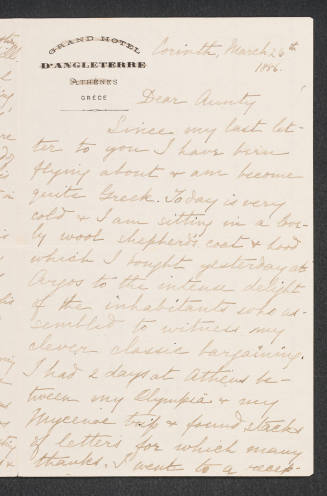 GRAND HOTEL
D'ANGLETERRE
ATHÈNES
GRÈCE
Corinth, March 26th
1886.
Dear Aunty
Since my last let-
ter to you I have been
flying about & am become
quite Greek. Today is very
cold & I am sitting in a
ly wool shepherds coat & hood
which I bought yesterday at
Argos to the intense delight
of the inhabitants who as-
sembled to witness my
clever classic bargaining.
I had 2 days at Athens be-
tween my Olympia & my
Mycenae trip & found stacks
of letters for which many
thanks. I went to a recep-